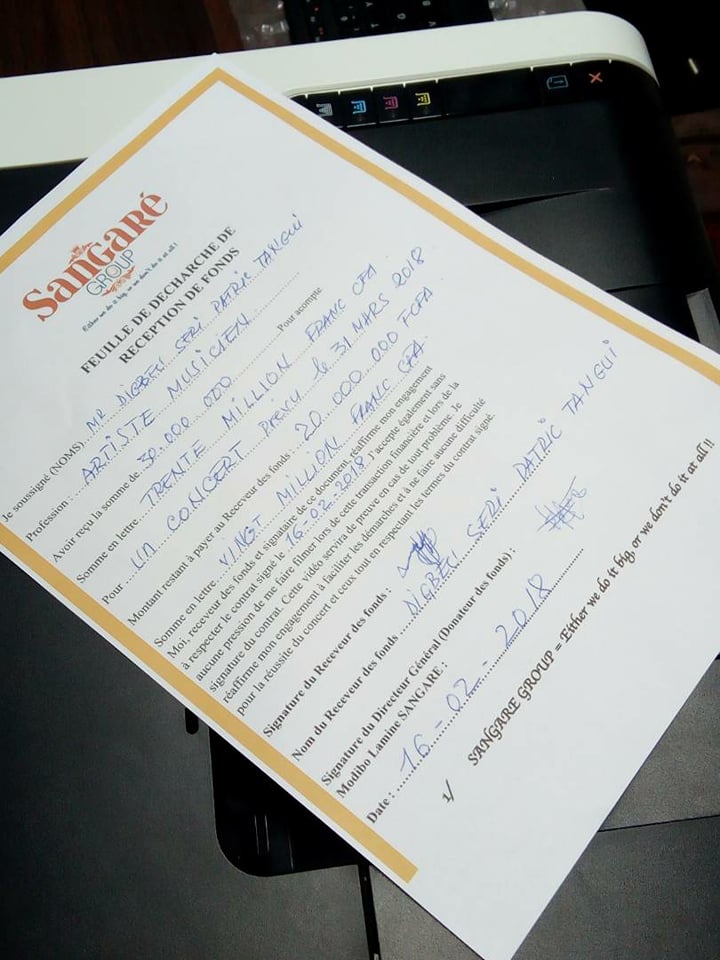 Sangaré
GROUP
Either we do it big, or we don't do it at all !
FEUILLE DE DECHARGE DE
RECEPTION DE FONDS
Je soussigné (NOMS) MR DIGBEU SERI PATRIC TANGUI
Profession : ARTISTE MUSICIEN
Avoir reçu la somme de 30.000.000 Pour acompte
Somme en lettre TRENTE MILLION FRANC CFA
Pour : UN CONCERT Prévu le 31 MARS 2018
Montant restant à payer au Receveur des fonds : 20 000 000 FCFA
Somme en lettre VINGT MILLION FRANC CFA
Moi, receveur des fonds et signataire de ce document, réaffirme mon engagement
à respecter le contrat signé le 16-02-2018 J'accepte également sans
aucune pression de me faire filmer lors de cette transaction financière et lors de la
signature du contrat. Cette vidéo servira de preuve en cas de tout problème. Je
réaffirme mon engagement à faciliter les démarches et à ne faire aucune difficulté
pour la réussite du concert et ceux tout en respectant les termes du contrat signé.
Signature du Receveur des fonds :
Nom du Receveur des fonds DIGBEU SERI PATRIC TANGUI
Signature du Directeur Général (Donateur des fonds) :
Modibo Lamine SANGARE :
Date : 16 - 02 - 2018
1/ SANGARE GROUP = Either we do it big, or we don't do it at all !!